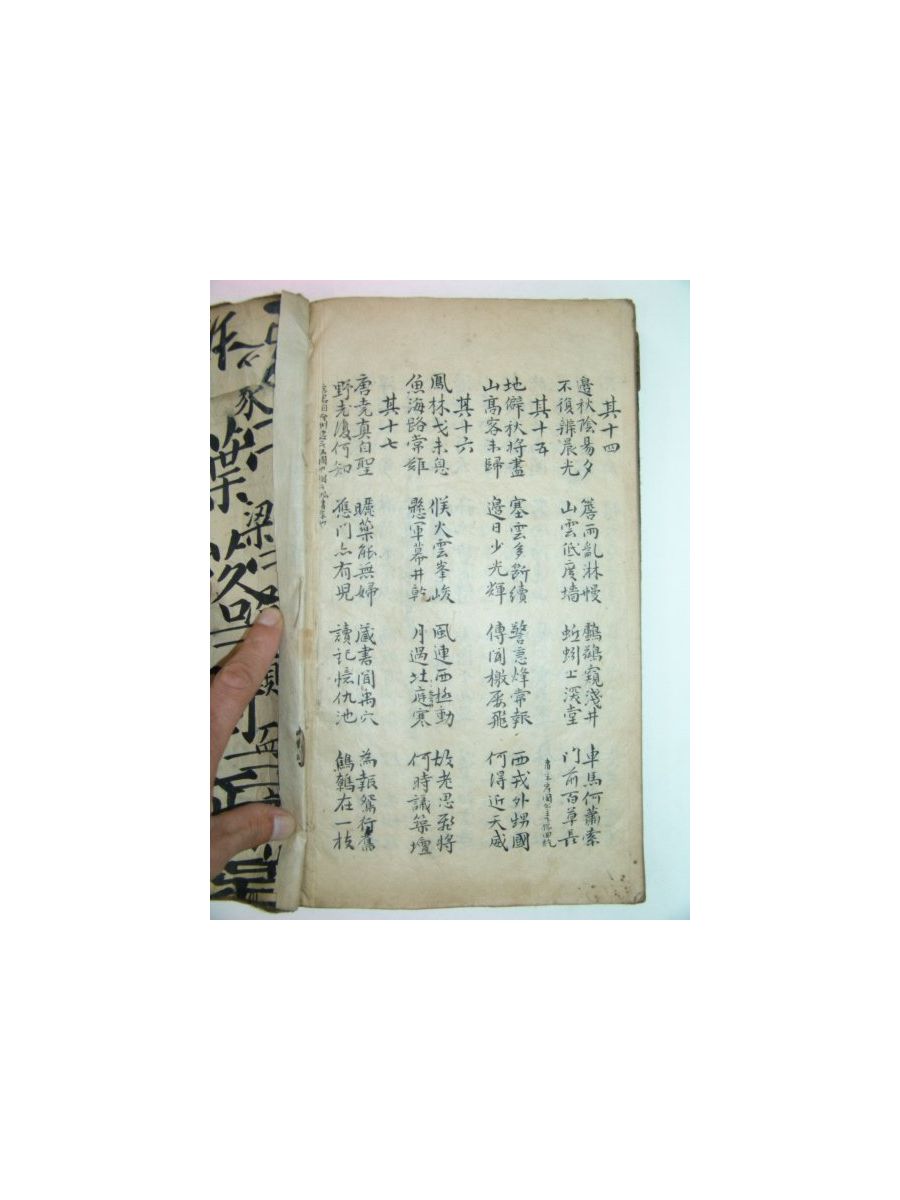 其十四
邊秋陰易夕 簷雨亂淋幔 鸕鶿窺淺井 車馬何蕭索
不復辨晨光 山雲低度墻 蚯蚓上深堂 門前百草長
其十五
地僻秋將盡 塞雲多斷續 警急烽常報 西戎外甥國
山高客未歸 邊日少光輝 傳聞檄屢飛 何得近天威
其十六
鳳林戈未息 候火雲峯峻 風連西極動 故老思飛將
魚海路常難 懸軍幕井乾 月過北庭寒 何時議築壇
其十七
唐堯真自聖 曬藥能無婦 藏書聞禹穴 為報鴛行舊
野老復何知 應門亦有兒 讀記憶仇池 鷦鷯在一枝
梁
葉落